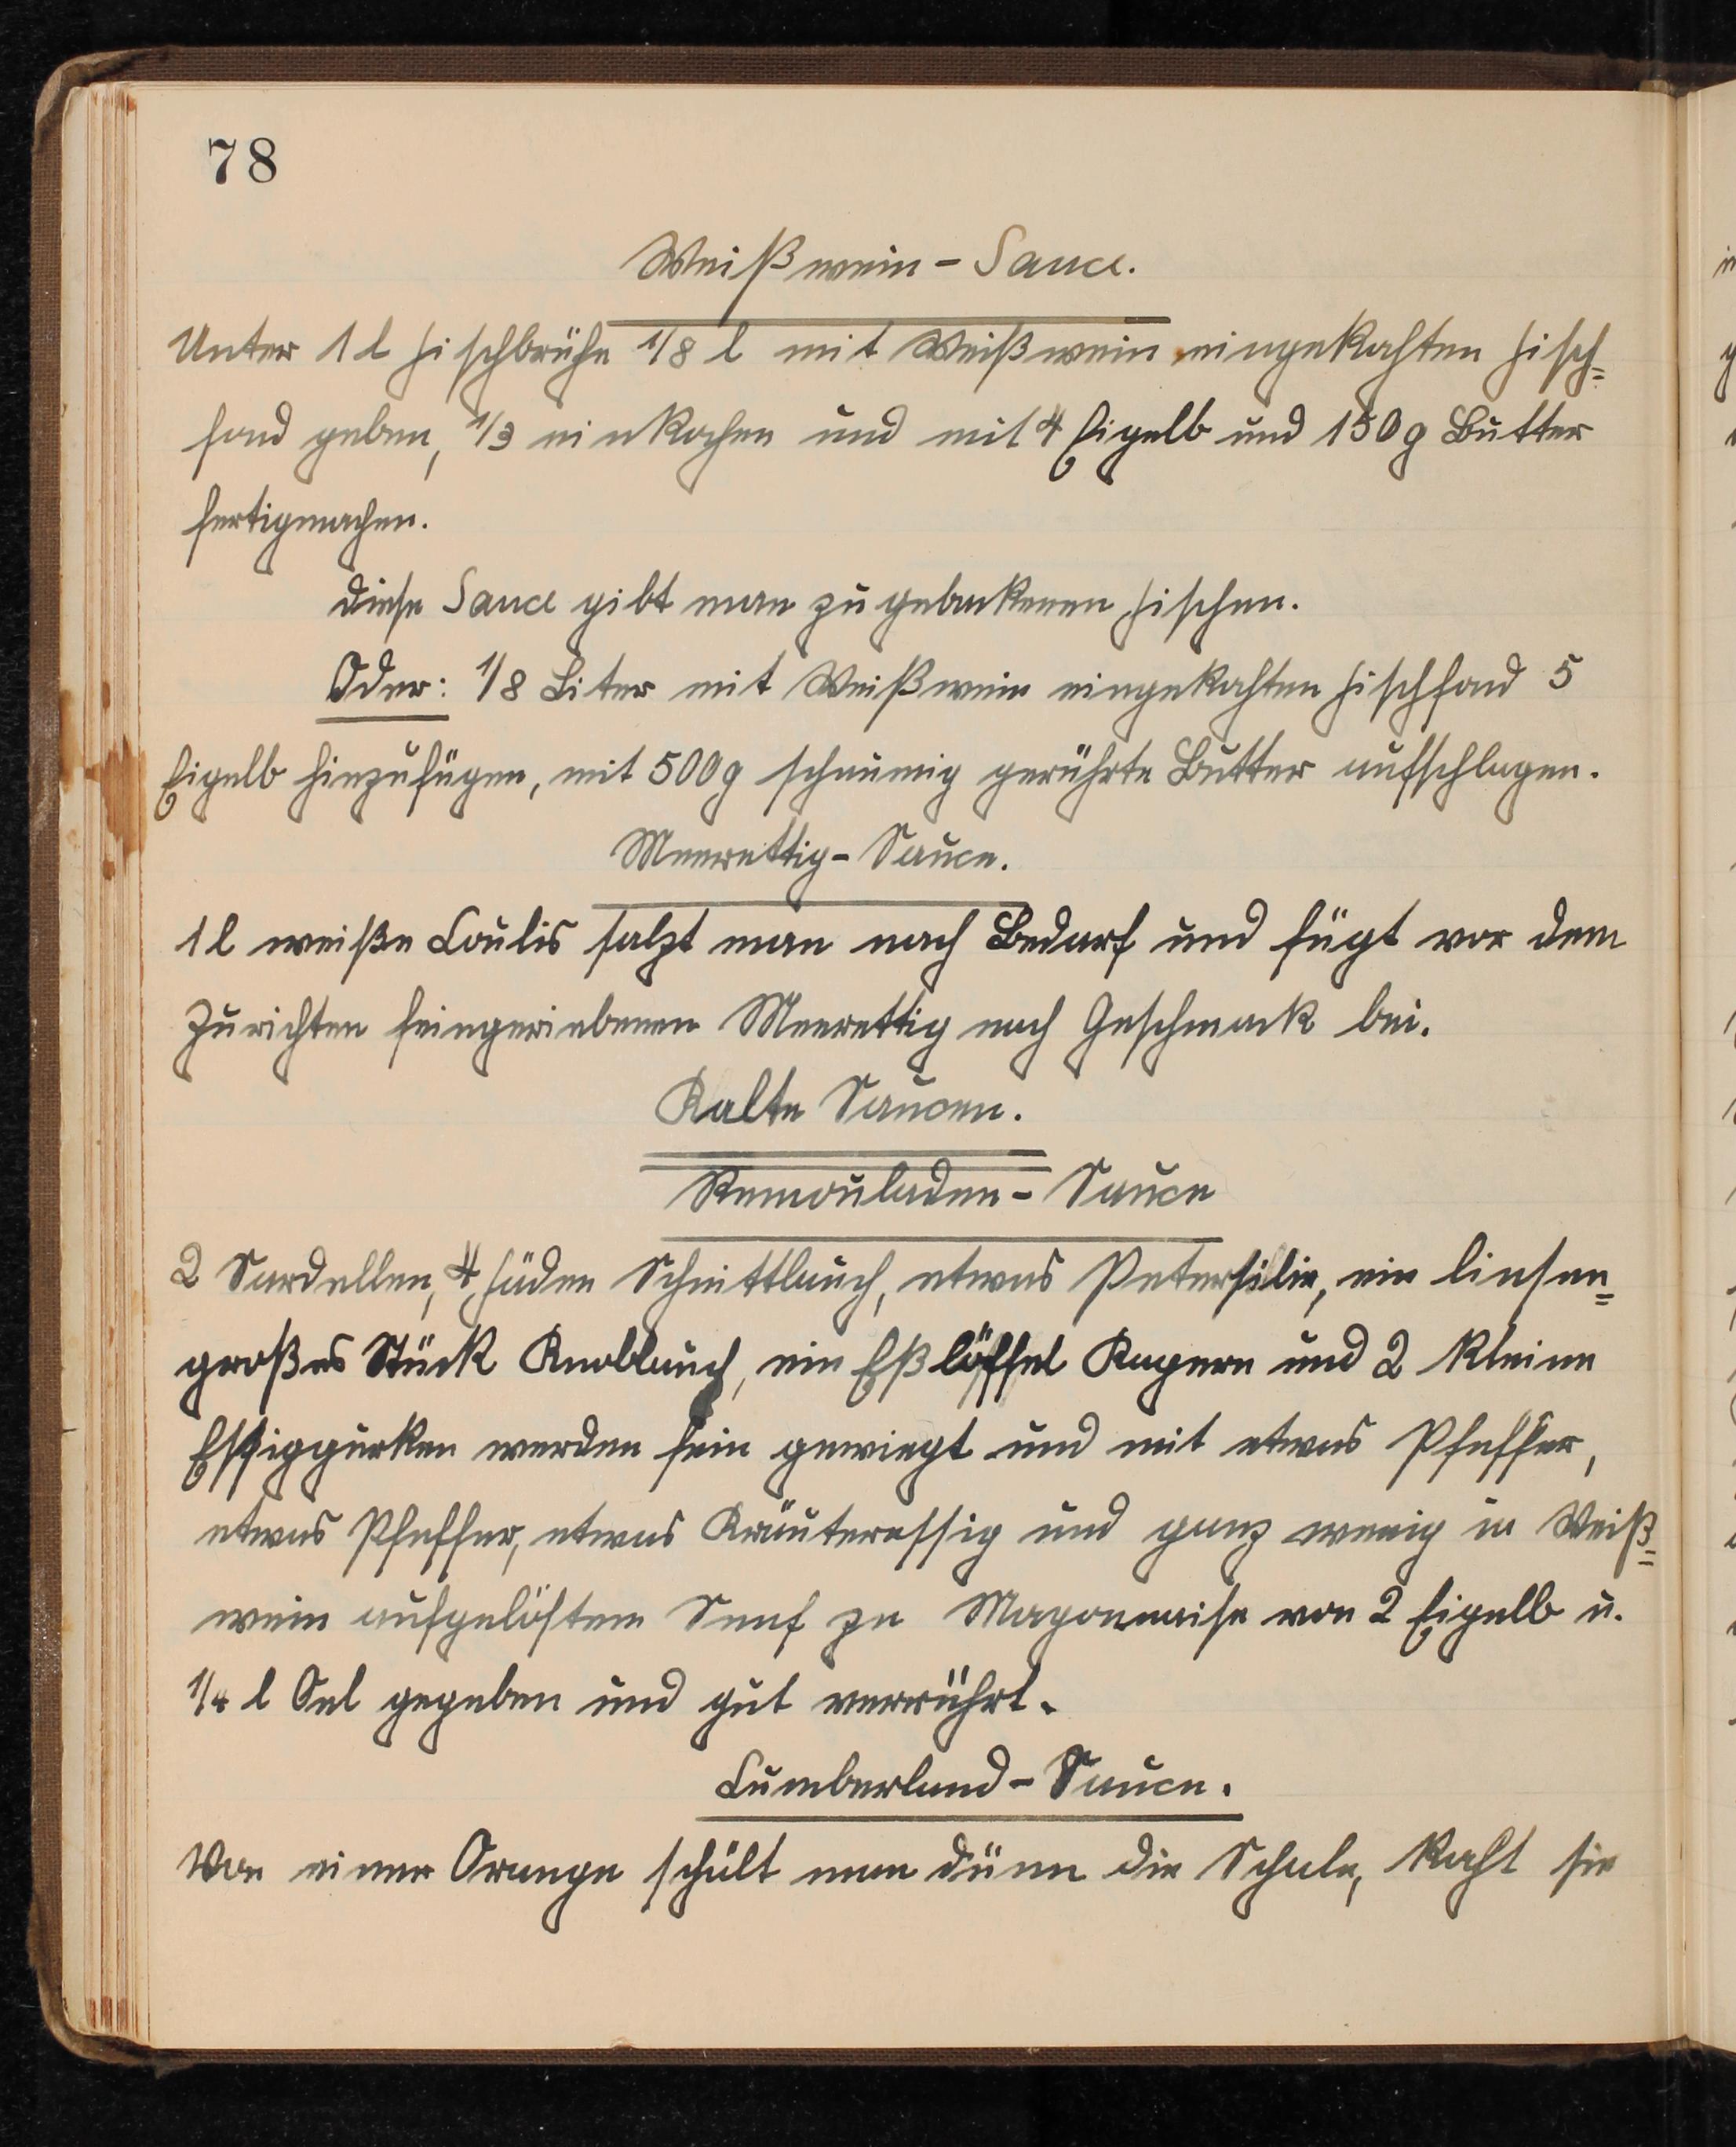 78
Weißwein-Sauce.
Unter 1 l Fischbrühe 1/8 l mit Weißwein eingekochten Fisch=
fond geben, 1/3 einkochen und mit 4 Eigelb und 150 g Butter
fertigmachen.
Diese Sauce gibt man zu gebackenen Fischen.
Oder: 1/8 Liter mit Weißwein eingekochten Fischfond 5
Eigelb hinzufügen, mit 500 g schaumig gerührte Butter aufschlagen.
Meerrettig-Sauce.
1 l weiße Coulis salzt man nach Bedarf und fügt vor dem
Zurichten feingeriebenen Meerrettig nach Geschmack bei.
Kalte Saucen.
Remouladen-Sauce
2 Sardellen, 4 Fäden Schnittlauch, etwas Petersilie, ein linsen=
großes Stück Knoblauch, ein Eßlöffel Kapern und 2 kleine
Essiggurken werden fein gewiegt und mit etwas Pfeffer,
etwas Pfeffer, etwas Kräuteressig und ganz wenig in Weiß=
wein aufgelöstem Senf zu Mayonnaise von 2 Eigelb u.
1/4 l Oel gegeben und gut verrührt.
Cumberland-Sauce.
Von einer Orange schält man dünn die Schale, kocht sie